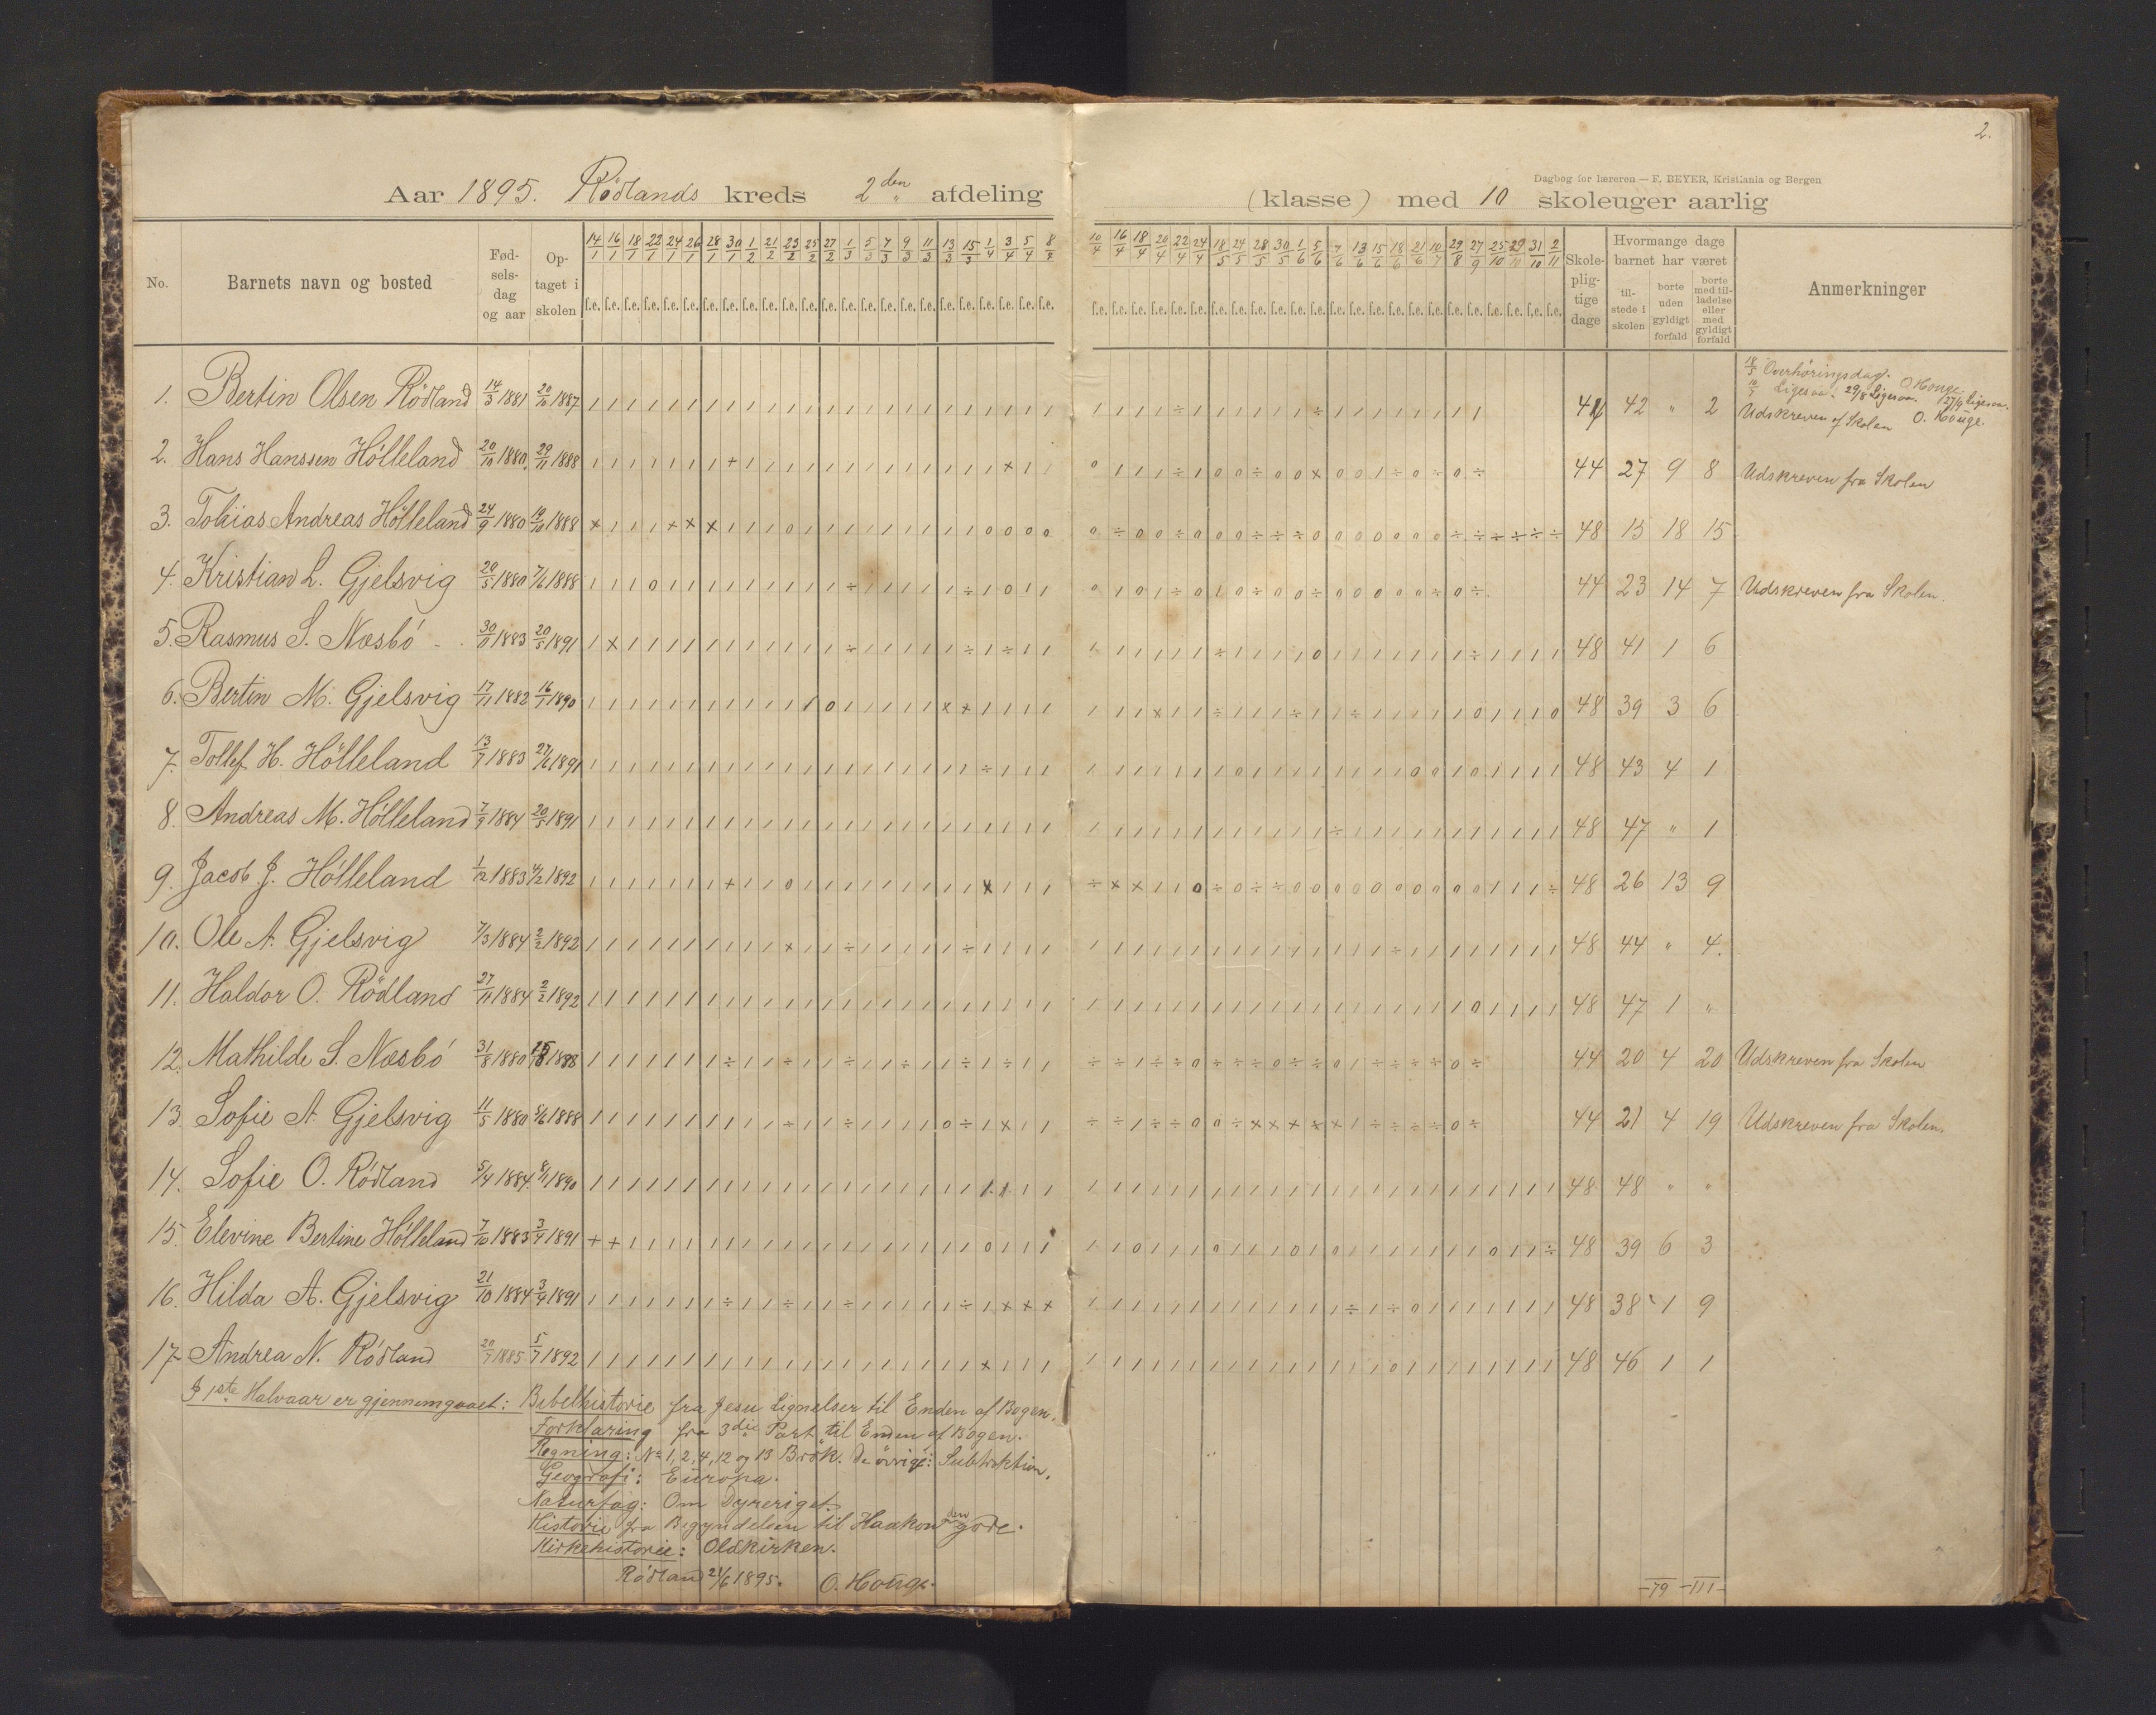 2.
Dagbog for læreren — F. BEYER, Kristiania og Bergen
Aar 1895. Rødlands kreds 2den afdeling (klasse) med 10 skoleuger aarlig
No. Barnets navn og bosted Fødselsdag og aar Optaget i skolen Skolepligtige dage Hvormange dage barnet har været tilstede i skolen borte uden gyldigt forfald borte med tilladelse eller med gyldigt forfald Anmerkninger
14/1 16/1 18/1 22/1 24/1 26/1 28/1 30/1 1/2 21/2 23/2 25/2 27/2 1/3 5/3 7/3 9/3 11/3 13/3 15/3 1/4 3/4 5/4 8/4 10/4 16/4 18/4 20/4 22/4 24/4 18/5 24/5 28/5 30/5 1/6 5/6 7/6 13/6 15/6 18/6 21/6 10/7 29/8 27/9 25/10 29/10 31/10 2/11
18/5 Overhøringsdag. O. Houge.
10/7 Ligesaa. 29/8 Ligesaa. 27/9 Ligesaa.
1. Bertin Olsen Rødland 14/3 1881 20/10 1887 42 " 2 Udskreven af Skolen O. Houge.
2. Hans Hanssen Hølleland 20/10 1880 29/11 1888 44 27 9 8 Udskreven fra Skolen
3. Tobias Andreas Hølleland 24/9 1880 19/10 1888 48 15 18 15
4. Kristian L. Gjelsvig 20/5 1880 7/6 1888 44 23 14 7 Udskreven fra Skolen.
5. Rasmus S. Næsbø 30/11 1883 20/5 1891 48 41 1 6
6. Bertin M. Gjelsvig 17/11 1882 16/7 1890 48 39 3 6
7. Tollef H. Hølleland 13/7 1883 27/6 1891 48 43 4 1
8. Andreas M. Hølleland 7/9 1884 20/5 1891 48 47 " 1
9. Jacob J. Hølleland 1/12 1883 4/2 1892 48 26 13 9
10. Ole A. Gjelsvig 7/3 1884 2/2 1892 48 44 " 4.
11. Haldor O. Rødland 27/11 1884 2/2 1892 48 47 1 "
12. Mathilde S. Næsbø 31/8 1880 1888 44 20 4 20 Udskreven fra Skolen
13. Sofie A. Gjelsvig 11/5 1880 5/6 1888 44 21 4 19 Udskreven fra Skolen.
14. Sofie O. Rødland 5/4 1884 8/11 1890 48 48 " "
15. Elevine Bertine Hølleland 7/10 1883 3/4 1891 48 39 6 3
16. Hilda A. Gjelsvig 21/10 1884 3/4 1891 48 38 1 9
17. Andrea N. Rødland 20/7 1885 5/7 1892 48 46 1 1
I 1ste Halvaar er gjennemgaaet: Bibelhistorie fra Jesu Lignelser til Enden af Bogen.
Forklaring fra 3die Part til Enden af Bogen.
Regning: No 1, 2, 4, 12 og 13 Brøk. De øvrige: Subtraktion.
Geografi: Europa.
Naturfag: Om Dyreriget
Historie fra Begyndelsen til Haakon den gode.
Kirkehistorie: Oldkirken.
Rødland 21/6 1895. O. Houge.
-79 -111-